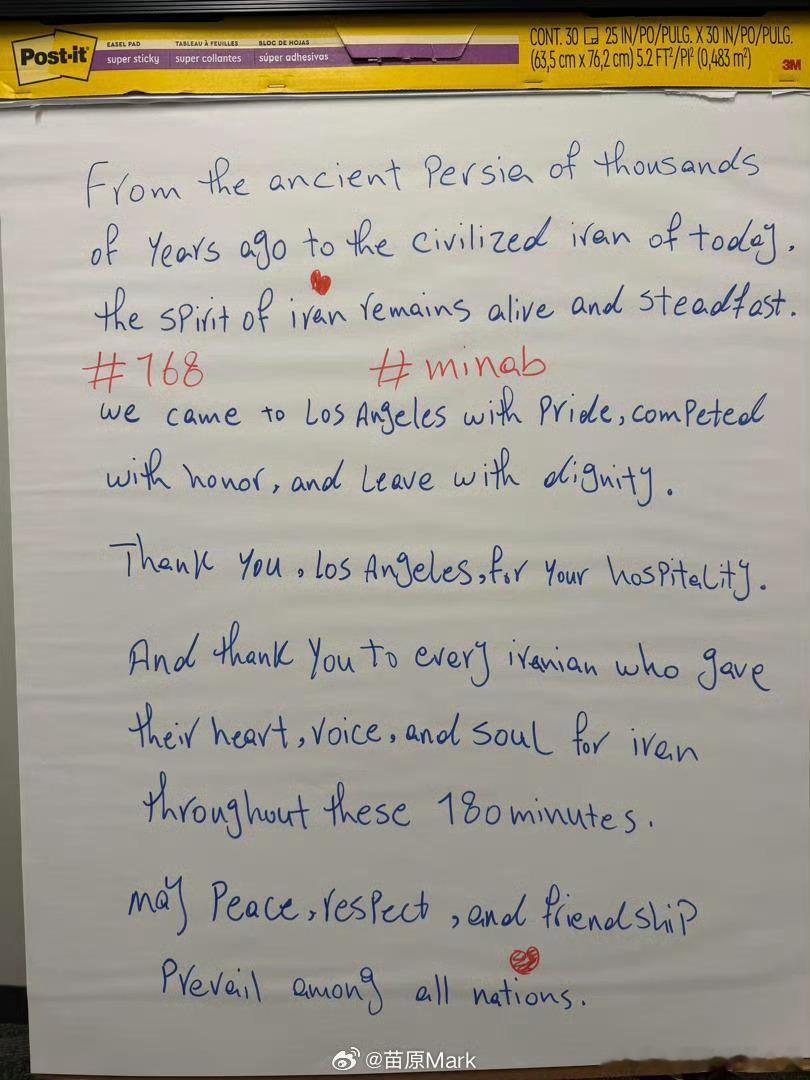 Post-it
EASEL PAD
super sticky
TABLEAU À FEUILLES
super collantes
BLOC DE HOJAS
súper adhesivas
CONT. 30 25 IN/PO/PULG. X 30 IN/PO/PULG.
(63,5 cm x 76,2 cm) 5.2 FT²/PI² (0,483 m²)
3M
From the ancient Persia of thousands
of years ago to the civilized iran of today.
the spirit of iran remains alive and steadfast.
#168 #minab
we came to Los Angeles with Pride, competed
with honor, and Leave with dignity.
Thank you, Los Angeles, for your hospitality.
And thank you to every iranian who gave
their heart, voice, and soul for iran
throughout these 180 minutes.
may Peace, respect, and friendship
Prevail among all nations.
@苗原Mark